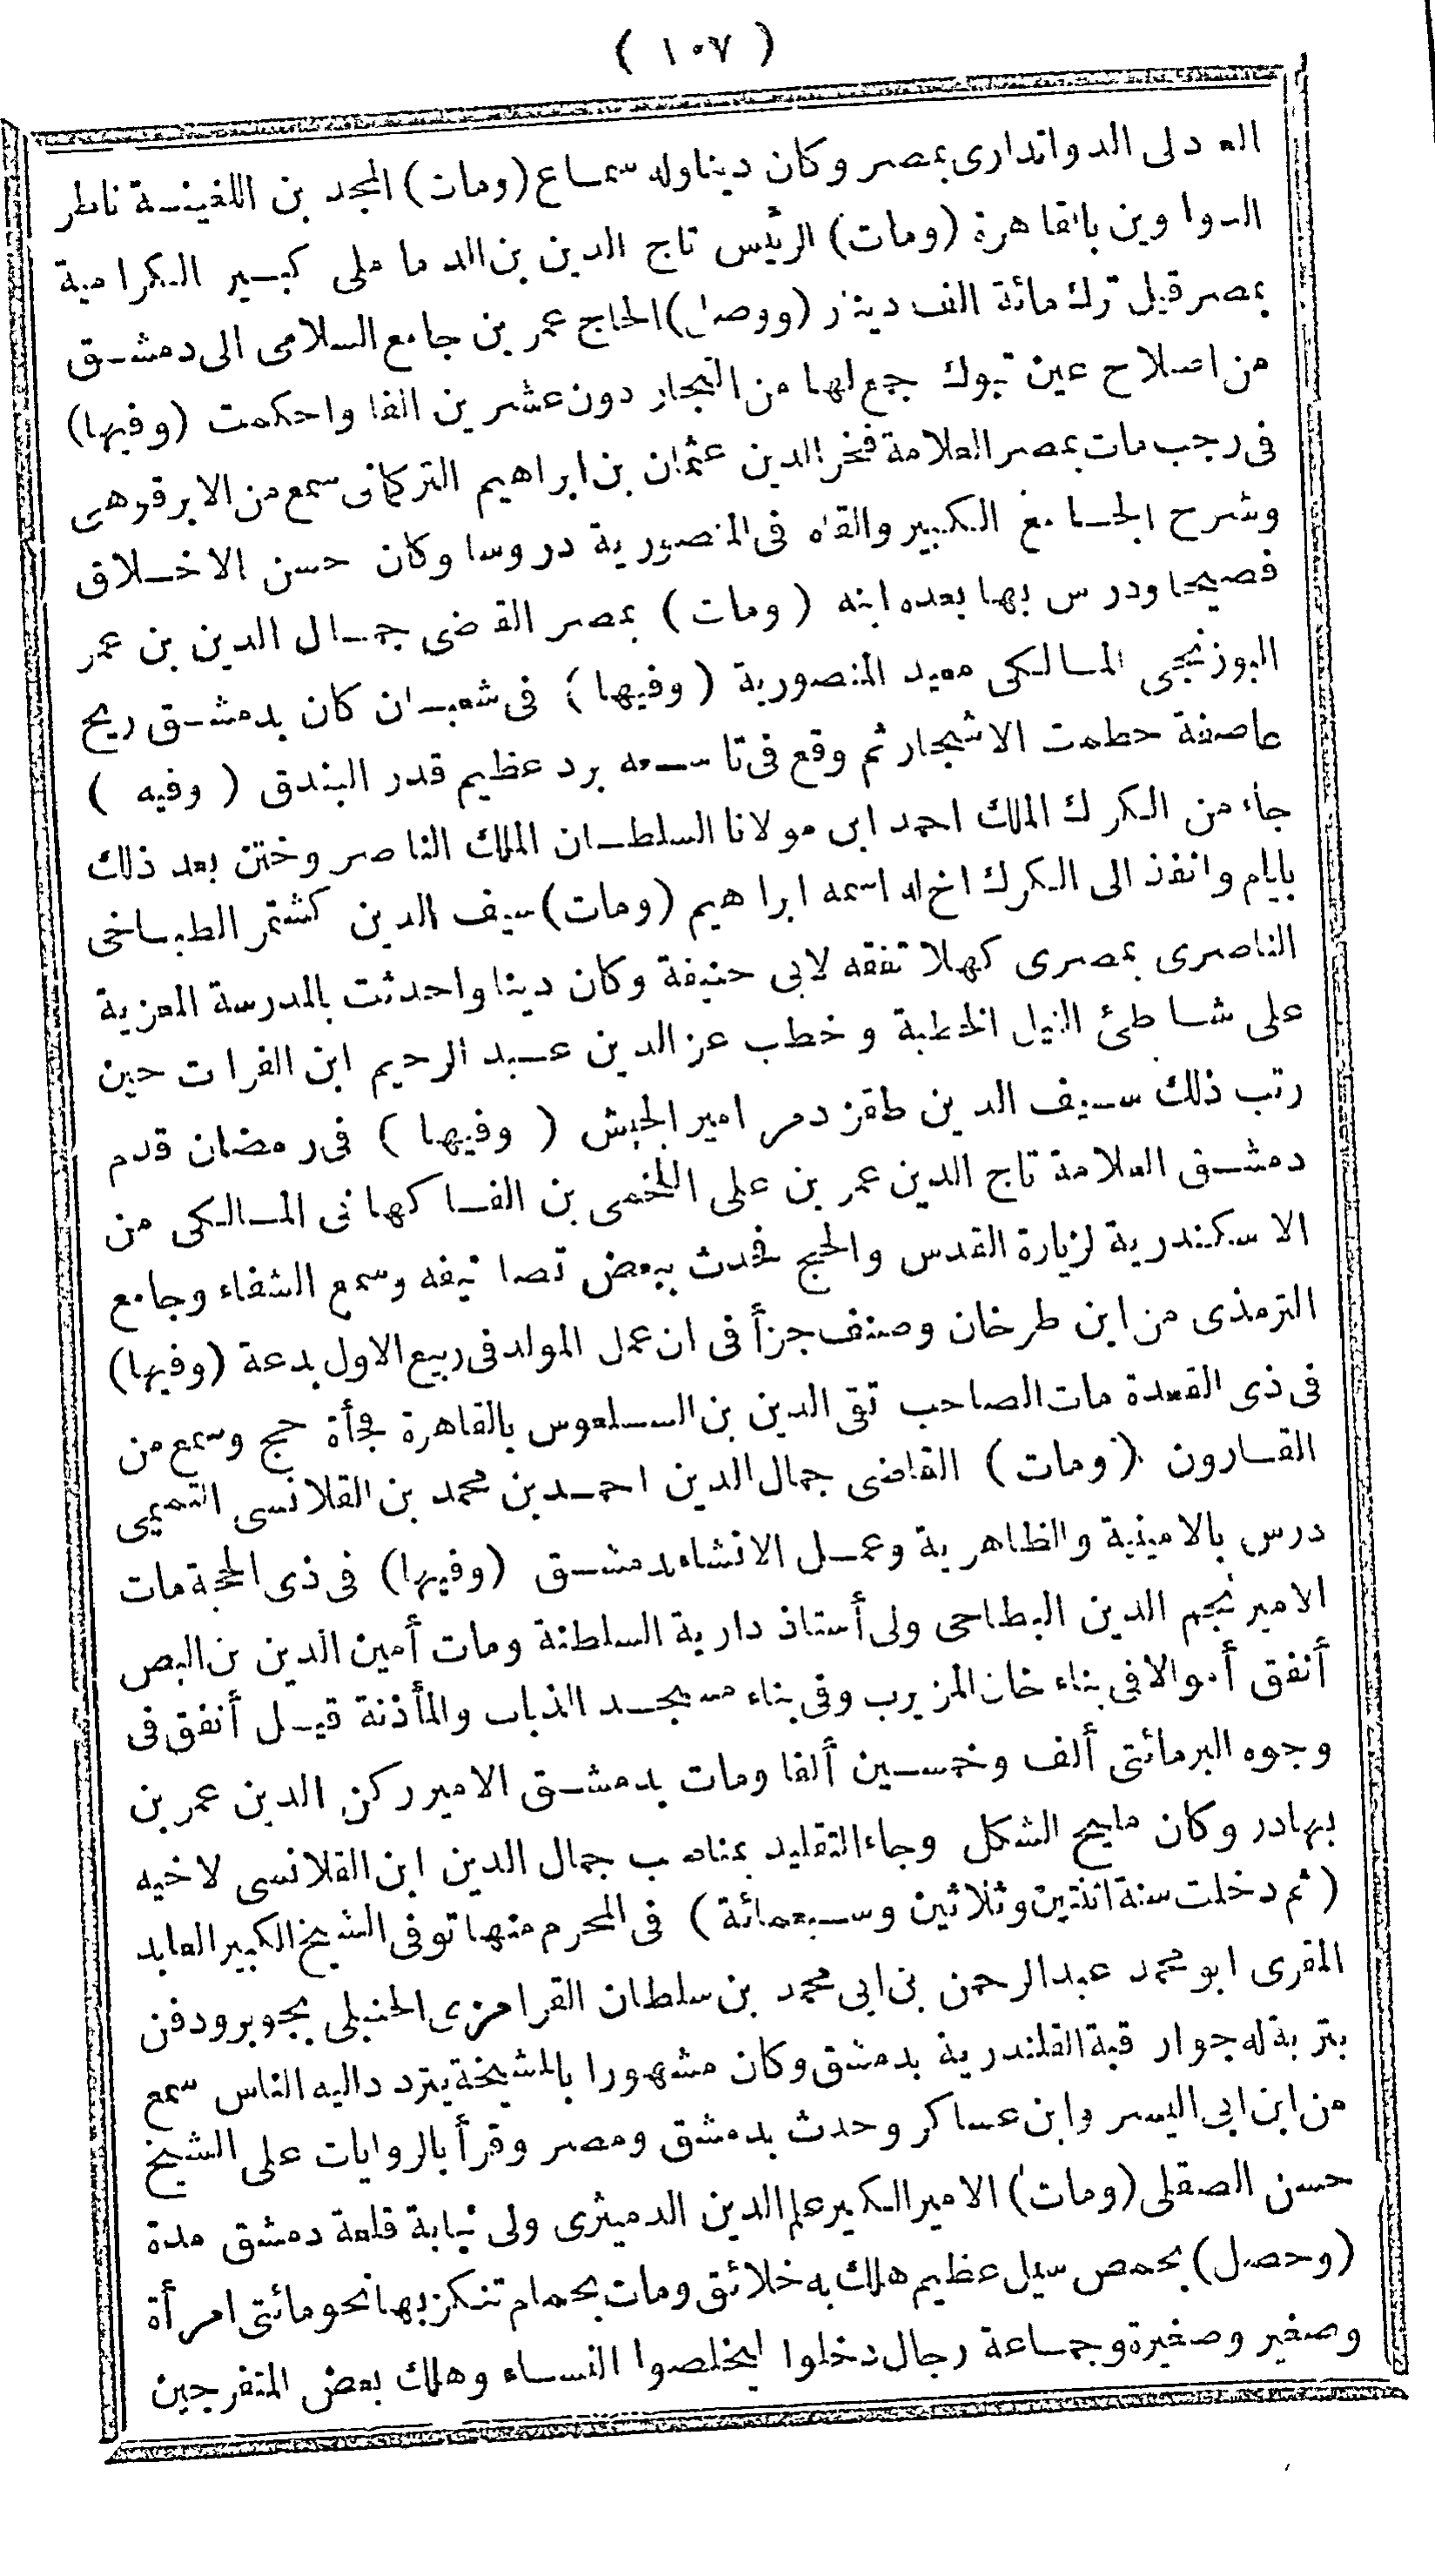 ( ١٠٧ )
العدلى الدواتدارى بمصر وكان دينا وله سماع (ومات) المجد بن اللفينة ناظر
الدواوين بالقاهرة (ومات) الرئيس تاج الدين بن الدماملى كبير الكرامية
بمصر قيل ترك مائة الف دينار (ووصل) الحاج عمر بن جامع السلامى الى دمشق
من اصلاح عين تبوك جمع لها من التجار دون عشرين الفا واحكمت (وفيها)
فى رجب مات بمصر العلامة فخر الدين عثمان بن ابراهيم التركمانى سمع من الابرقوهى
وشرح الجامع الكبير والقاه فى المنصورية دروسا وكان حسن الاخلاق
فصيحا ودرس بها بعده ابنه (ومات) بمصر القاضى جمال الدين بن عمر
البوزنجى المالكى معيد المنصورية (وفيها) فى شعبان كان بدمشق ريح
عاصفة حطمت الاشجار ثم وقع فى تاسعه برد عظيم قدر البندق (وفيه)
جاء من الكرك الملك احمد ابن مولانا السلطان الملك الناصر وختن بعد ذلك
بايام وانفذ الى الكرك اخ له اسمه ابراهيم (ومات) سيف الدين كشتمر الطباخى
الناصرى بمصرى كهلا تفقه لابى حنيفة وكان دينا واحدثت بالمدرسة المعزية
على شاطئ النيل الخطبة وخطب عز الدين عبد الرحيم ابن الفرات حين
رتب ذلك سيف الدين طقزدمر امير الجيش (وفيها) فى رمضان قدم
دمشق العلامة تاج الدين عمر بن على اللخمى بن الفاكهانى المالكى من
الاسكندرية لزيارة القدس والحج فحدث ببعض تصانيفه وسمع الشفاء وجامع
الترمذى من ابن طرخان وصنف جزأ فى ان عمل المولد فى ربيع الاول بدعة (وفيها)
فى ذى القعدة مات الصاحب تقى الدين بن السلعوس بالقاهرة فجأة حج وسمع من
القارون (ومات) القاضى جمال الدين احمد بن محمد بن القلانسى التميمى
درس بالامينية والظاهرية وعمل الانشاء بدمشق (وفيها) فى ذى الحجة مات
الامير نجم الدين البطاحى ولى أستاذ دارية السلطنة ومات أمين الدين بن البص
أنفق أموالا فى بناء خان المزيرب وفى بناء مسجد الذباب والمأذنة قيل أنفق فى
وجوه البر مائتى ألف وخمسين ألفا ومات بدمشق الامير ركن الدين عمر بن
بهادر وكان مليح الشكل وجاء التقليد بمناصب جمال الدين ابن القلانسى لاخيه
(ثم دخلت سنة اثنتين وثلاثين وسبعمائة) فى المحرم منها توفى الشيخ الكبير العابد
المقرى ابو محمد عبد الرحمن بن ابى محمد بن سلطان القرامزى الحنبلى بجوبر ودفن
بتربة له جوار قبة القلندرية بدمشق وكان مشهورا بالمشيخة يتردد اليه الناس سمع
من ابن ابى اليسر وابن عساكر وحدث بدمشق ومصر وقرأ بالروايات على الشيخ
حسن الصقلى (ومات) الامير الكبير علم الدين الدميثرى ولى نيابة قلعة دمشق مدة
(وحصل) بحمص سيل عظيم هلك به خلائق ومات بحمام تنكز بها نحو مائتى امرأة
وصغير وصغيرة وجماعة رجال دخلوا ليخلصوا النساء وهلك بعض المتفرجين